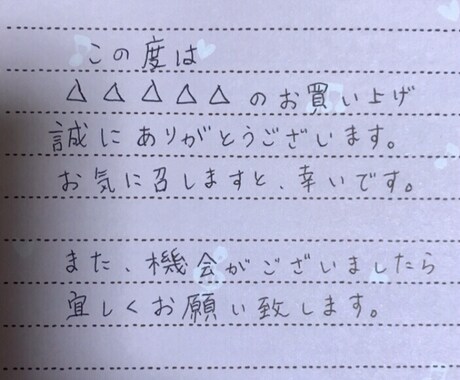 この度は
△△△△△のお買い上げ
誠にありがとうございます。
お気に召しますと、幸いです。
また、機会がございましたら
宜しくお願い致します。